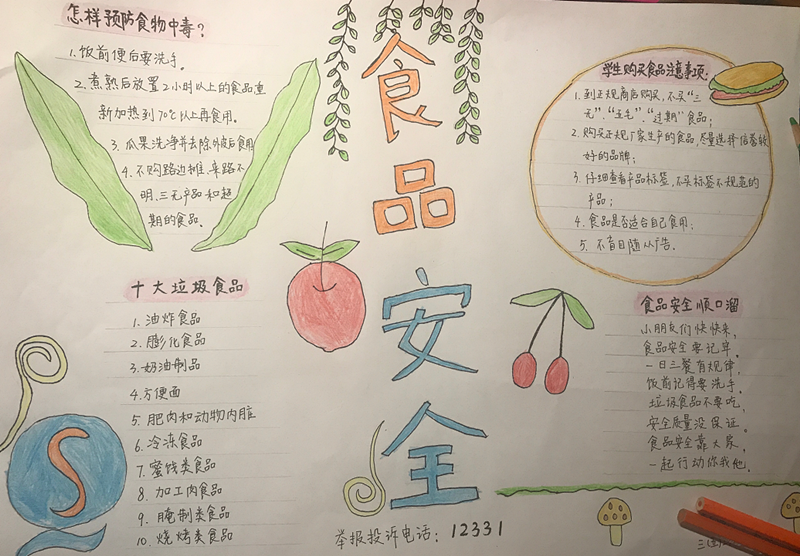 怎样预防食物中毒?
1.饭前便后要洗手。
2.煮熟后放置2小时以上的食品重
新加热到70℃以上再食用。
3.瓜果洗净并去除外皮后食用
4.不购路边摊、来路不
明、三无产品和超
期的食品。
十大垃圾食品
1.油炸食品
2.膨化食品
3.奶油制品
4.方便面
5.肥肉和动物内脏
6.冷冻食品
7.蜜饯类食品
8.加工肉食品
9.腌制类食品
10.烧烤类食品
食品安全
举报投诉电话:12331
学生购买食品注意事项:
1.到正规商店购买,不买“三
无”、“五毛”、“过期”食品;
2.购买正规厂家生产的食品,尽量选择信誉较
好的品牌;
3.仔细查看产品标签,不买标签不规范的
产品;
4.食品是否适合自己食用;
5.不盲目随从广告。
食品安全顺口溜
小朋友们快快来,
食品安全要记牢。
一日三餐有规律,
饭前记得要洗手。
垃圾食品不要吃,
安全质量没保证。
食品安全靠大家,
一起行动你我他.